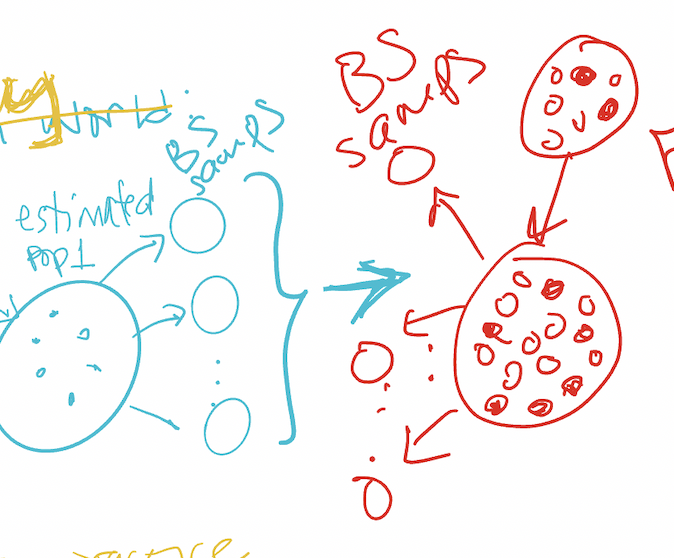 world
BS
samps
estimated
pop 1
BS
samps